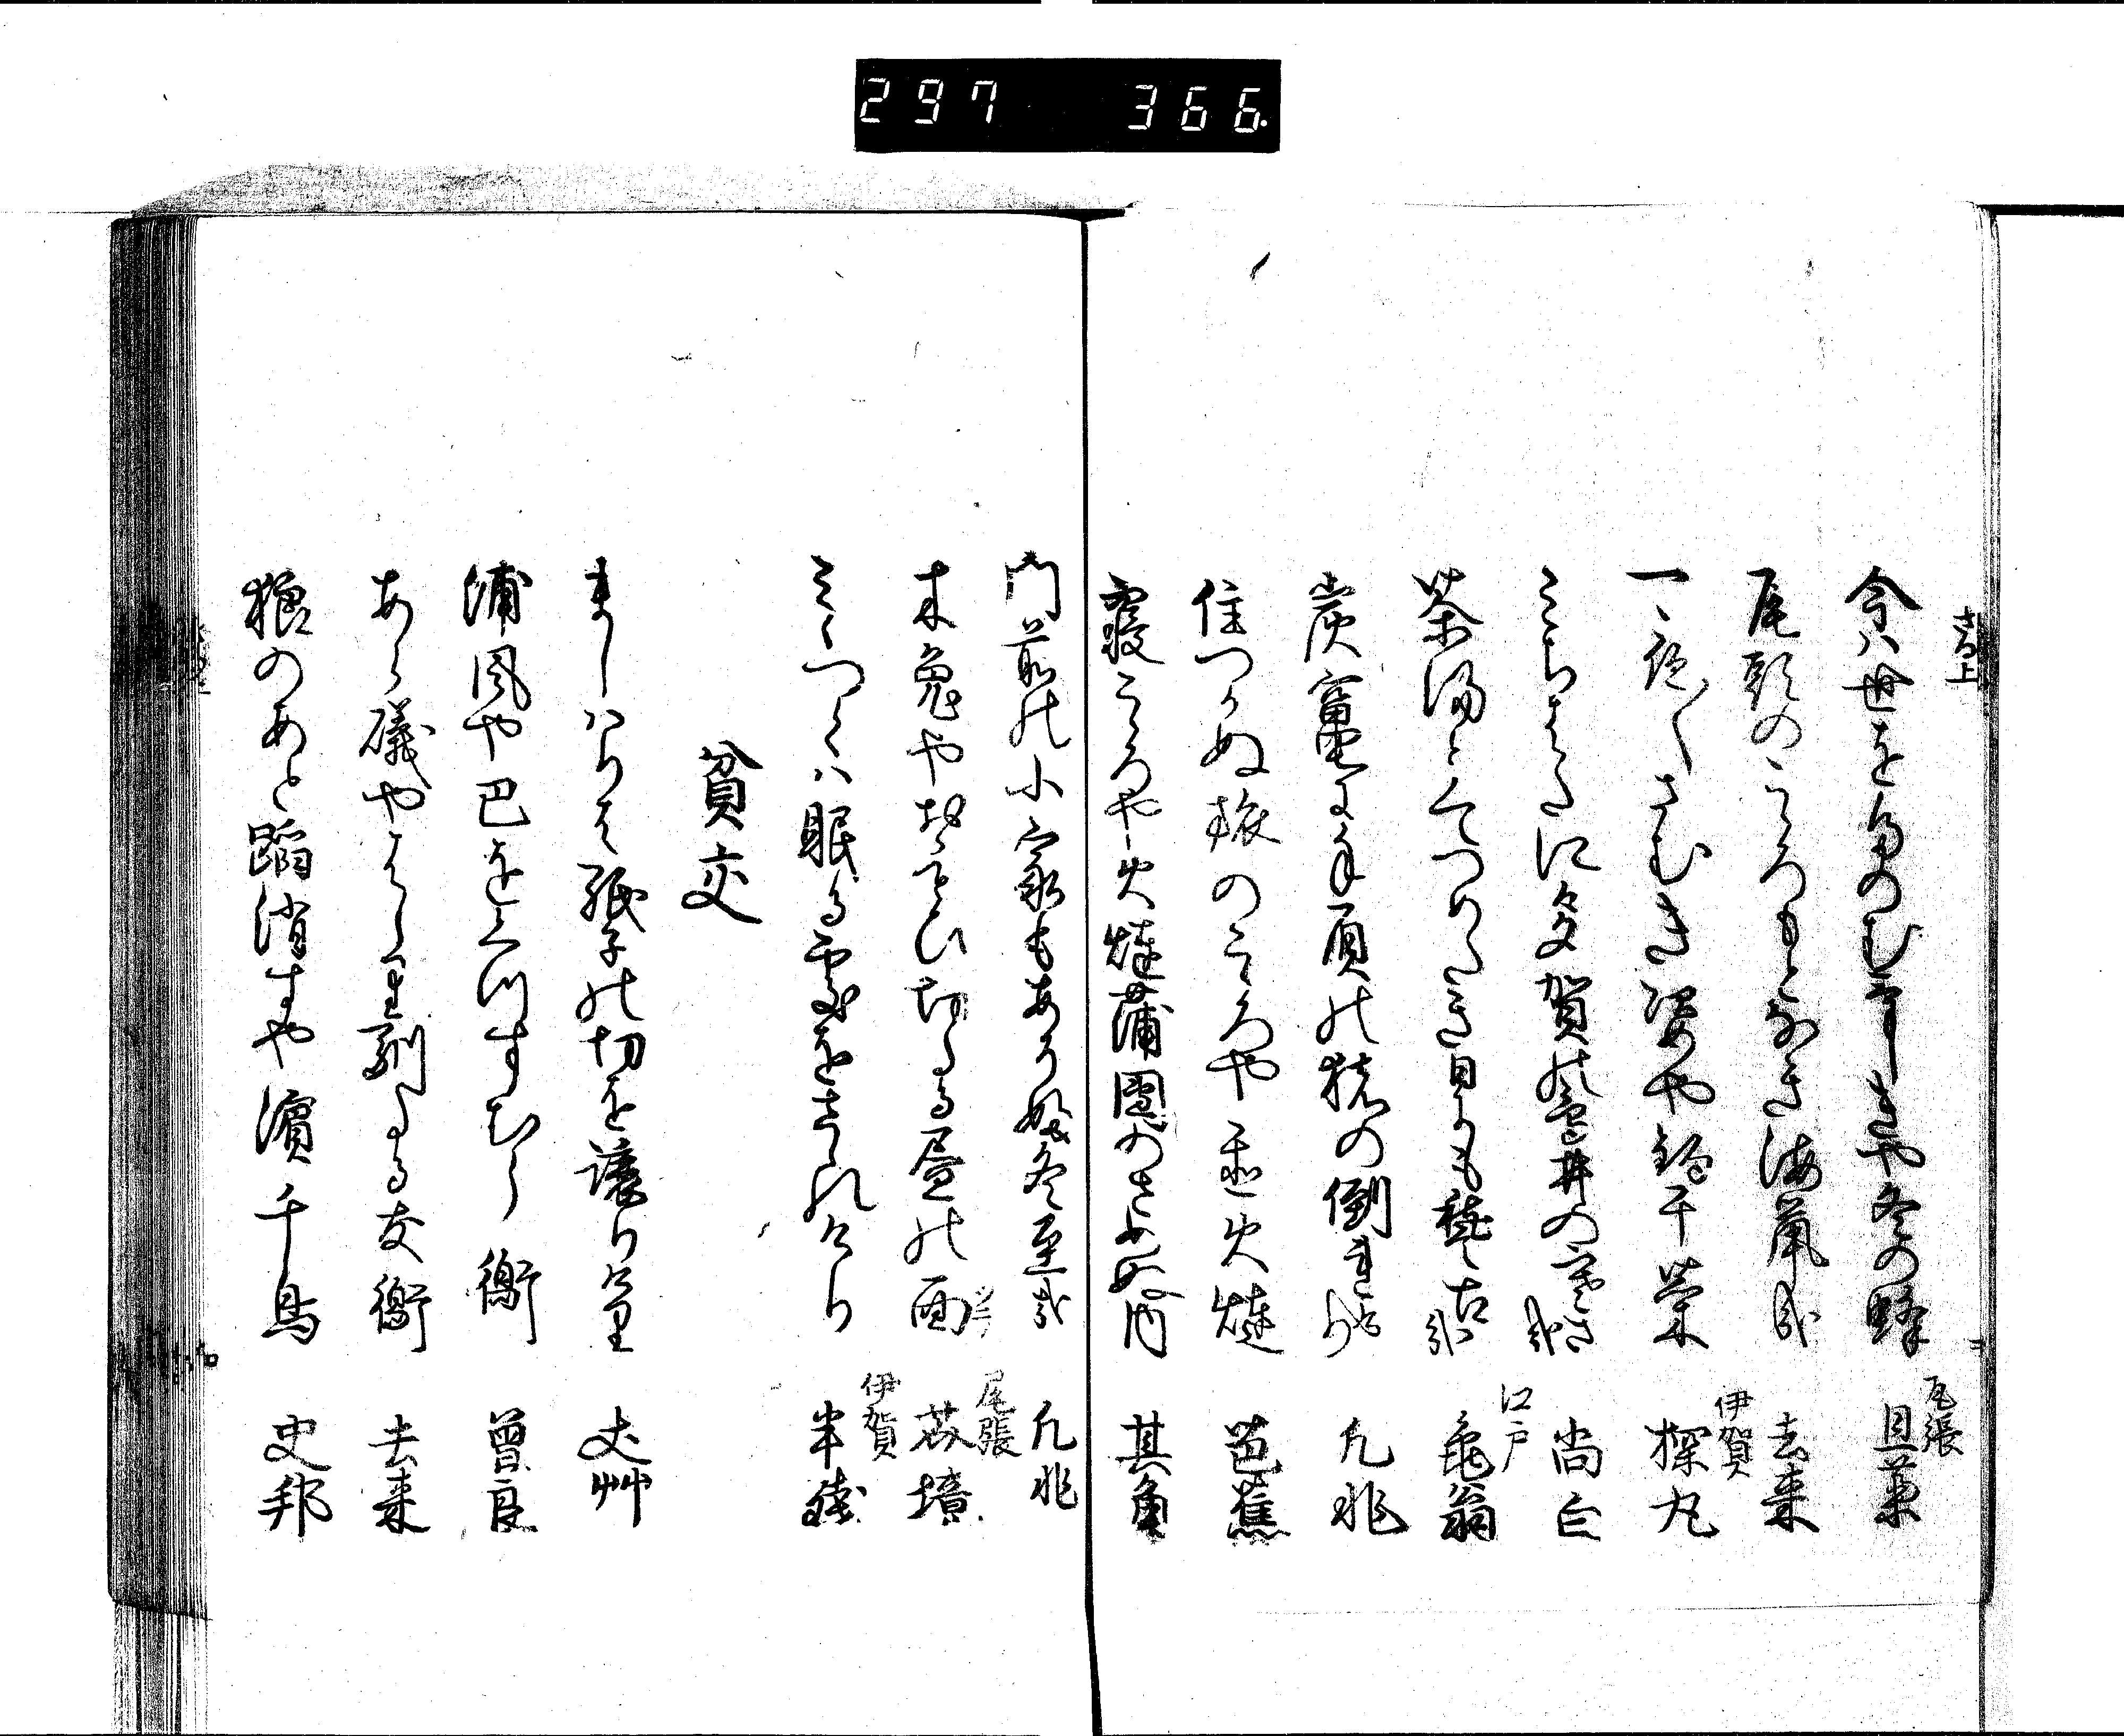 297 366.
さる上
今は世をたのむけしきや冬の蜂 尾張 旦藁
尾頭のこゝろもとなき海鼠哉 去来
一夜〳〵さむき姿や釣干菜 伊賀 探丸
みちばたに多賀の鳥井の寒さ哉 尚白
茶湯とてつめたき日にも稽古哉 江戸 亀翁
炭竃に手負の猪の倒れけり 凡兆
住つかぬ旅のこゝろや置火燵 芭蕉
寝ごゝろや火燵蒲団のさめぬ内 其角
門前の小家もあそぶ冬至哉 凡兆
木兎やおもひ切たる昼の面 尾張 芥境
みゝつくは眠る処をさゝれけり 伊賀 半残
貧交
まじはりは紙子の切を譲りけり 丈艸
浦風や巴をくづすむら鵆 曽良
あら磯やはしり馴たる友鵆 去来
狼のあと踏消すや濱千鳥 史邦